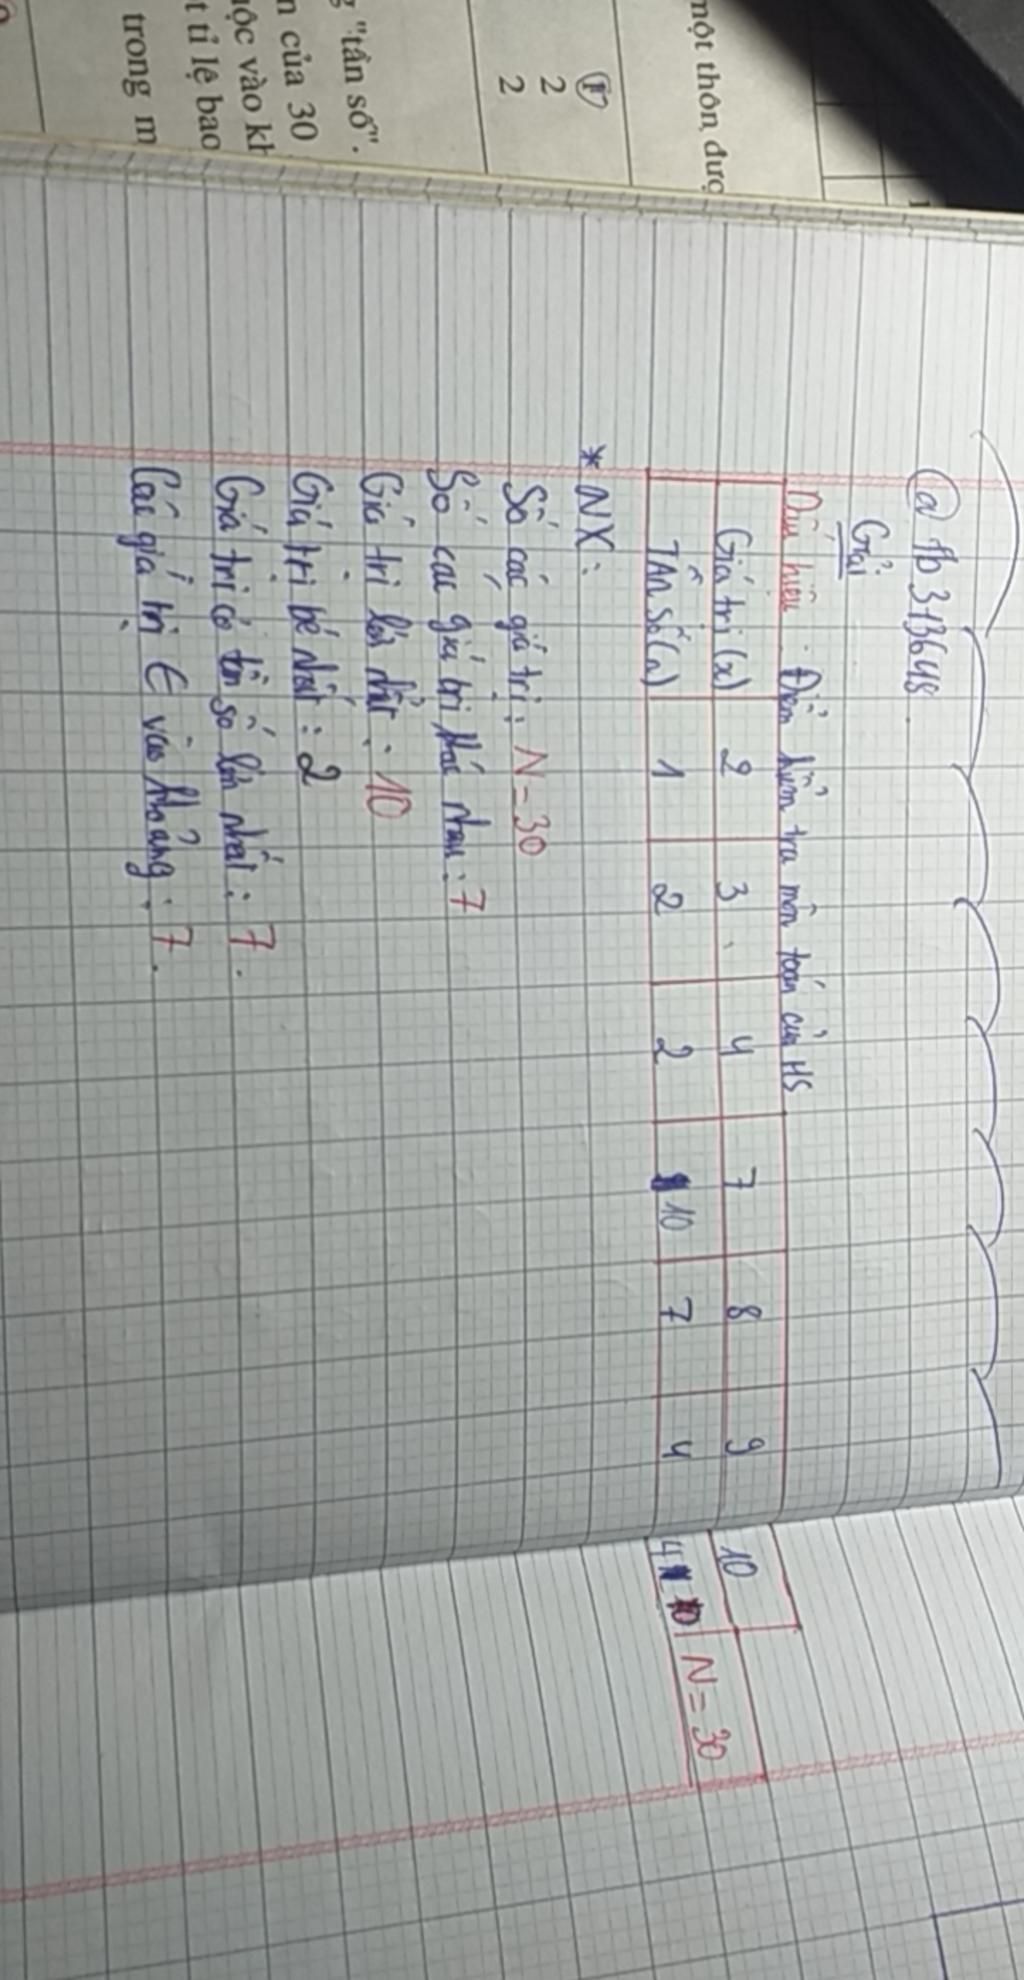 một thôn đượ
2
2
g "tần số".
n của 30
uộc vào kh
t tỉ lệ bao
trong m
Giải
Dấu hiệu: Điểm kiểm tra môn toán của HS
Giá trị (x) 2 3 4 7 8 9 10
Tần số (n) 1 2 2 10 7 4 4 N = 30
* NX:
Số các giá trị: N = 30
Số các giá trị khác nhau: 7
Giá trị lớn nhất: 10
Giá trị bé nhất: 2
Giá trị có tần số lớn nhất: 7.
Các giá trị ∈ vào khoảng: 7.